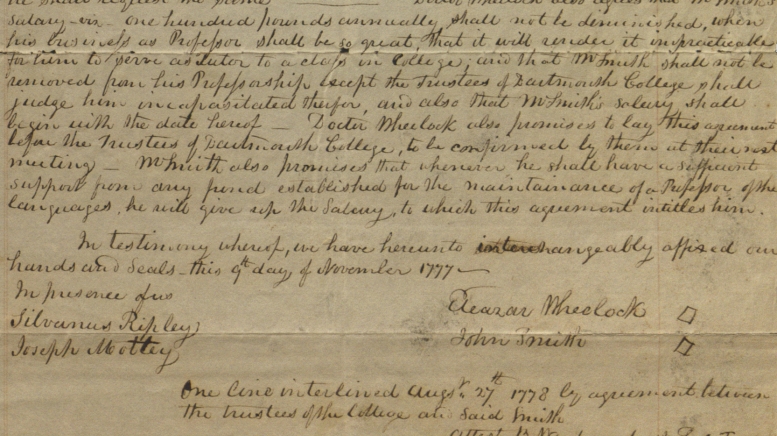 he shall request the same Doctr Wheelock also agrees that Mr Smith's
salary viz. one hundred pounds annually shall not be diminished, when
his business as Professor shall be so great, that it will render it impracticable
for him to serve as tutor to a class in College; and that Mr Smith shall not be
removed from his Professorship except the Trustees of Dartmouth College shall
judge him incapasitated therfor, and also that Mr Smith's salary shall
begin with the date hereof — Doctr Wheelock also promises to lay this agreement
before the Trustees of Dartmouth College, to be confirmed by them at their next
meeting — Mr Smith also promises that whenever he shall have a sufficient
support from any fund established for the maintainance of a Professor of the
languages, he will give up the Salary, to which this agreement intitles him.
In testimony whereof, we have hereunto interchangeably affixed our
hands and Seals — this 9th day of November 1777 —
In presence of us
Eleazar Wheelock
Silvanus Ripley
John Smith
Joseph Mottey
One line interlined Augst. 27th 1778 by agreement between
the trustees of the College and Said Smith
Attest